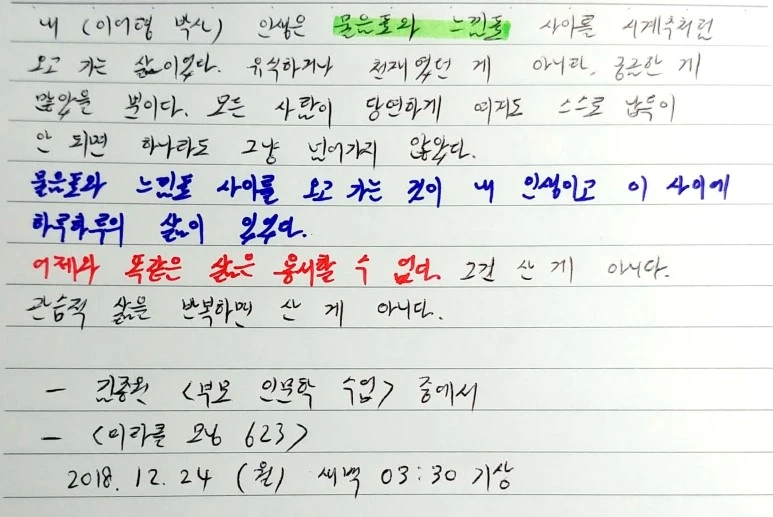 내 (이어령 박사) 인생은 물음표와 느낌표 사이를 시계추처럼
오고 가는 삶이었다. 유식하거나 천재였던 게 아니라, 궁금한 게
많았을 뿐이다. 모든 사람이 당연하게 여겨도 스스로 납득이
안 되면 하나라도 그냥 넘어가지 않았다.
물음표와 느낌표 사이를 오고 가는 것이 내 인생이고 이 사이에
하루하루의 삶이 있었다.
어제와 똑같은 삶은 용서할 수 없다. 그건 산 게 아니다.
관습적 삶을 반복하면 산 게 아니다.
- 김종원 <부모 인문학 수업> 중에서
- <미라클 모닝 623>
2018. 12. 24 (월) 새벽 03:30 기상